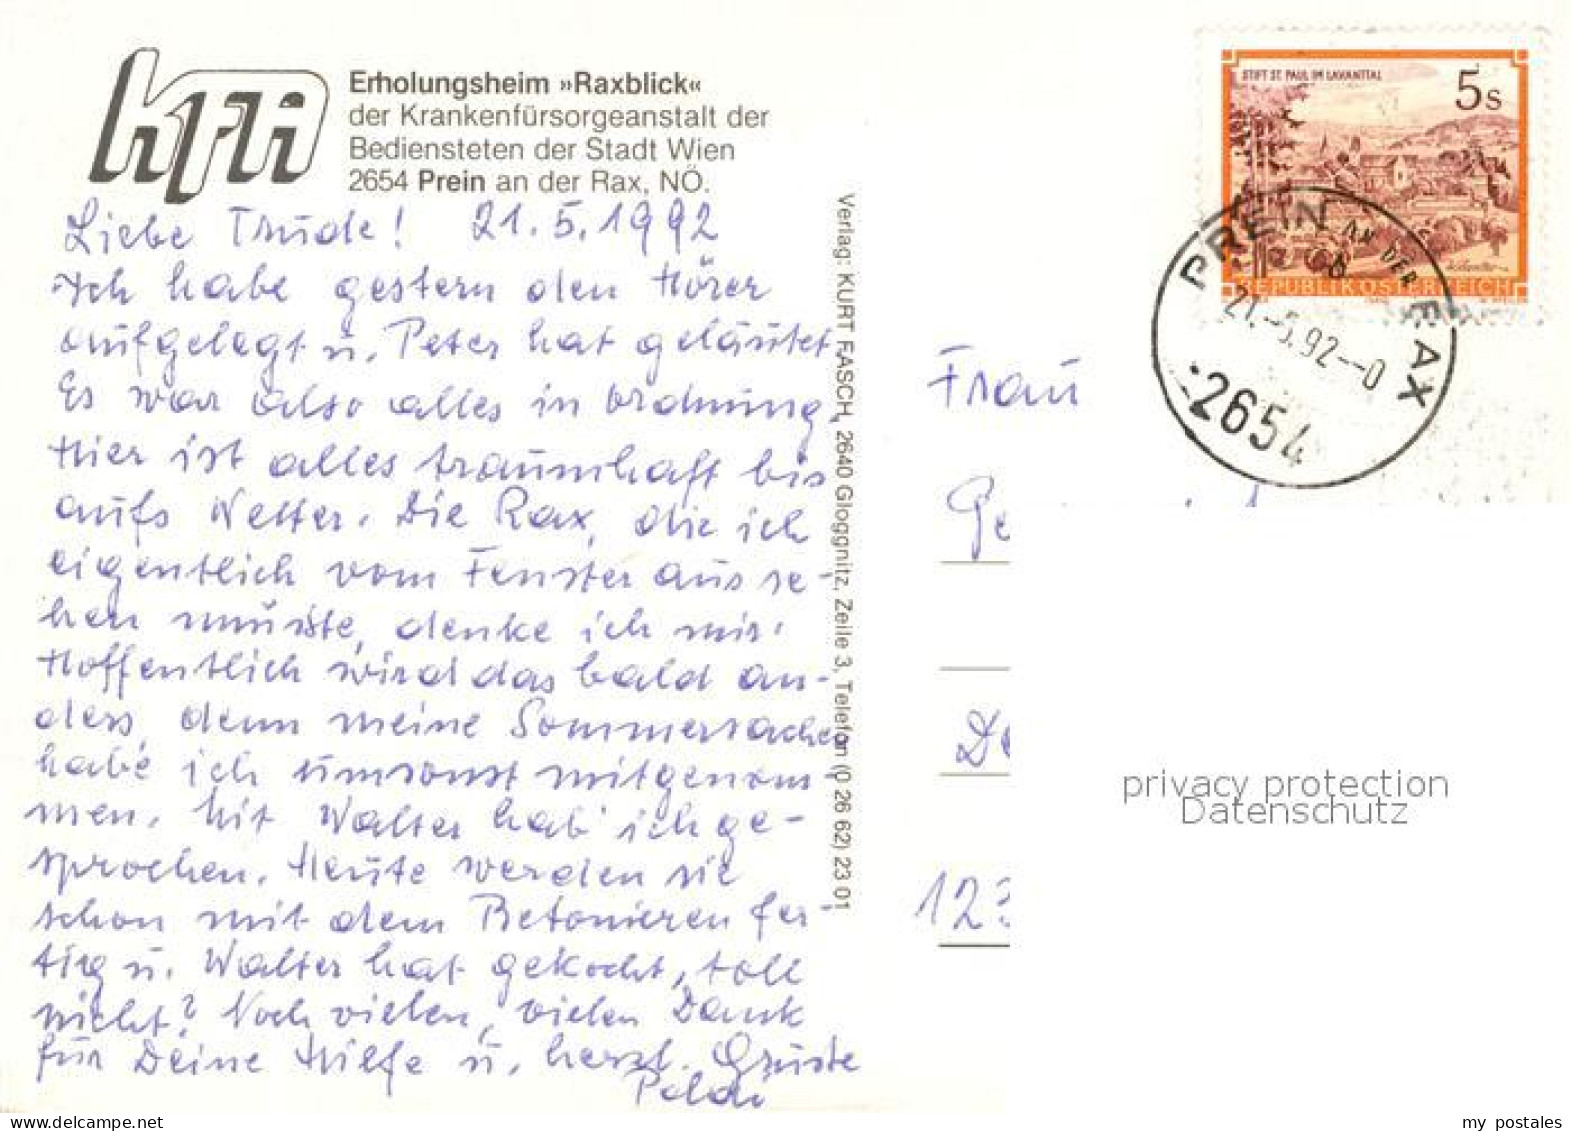 kfa
Erholungsheim »Raxblick«
der Krankenfürsorgeanstalt der
Bediensteten der Stadt Wien
2654 Prein an der Rax, NÖ.
Liebe Trude! 21.5.1992
Ich habe gestern den Hörer
aufgelegt u. Peter hat geläutet.
Es war also alles in Ordnung.
Hier ist alles traumhaft bis
aufs Wetter. Die Rax, die ich
eigentlich vom Fenster aus se-
hen müsste, denke ich mir.
Hoffentlich wird das bald an-
ders, denn meine Sommersachen
habe ich umsonst mitgenom-
men. Mit Walter hab' ich ge-
sprochen. Heute werden sie
schon mit dem Betonieren fer-
tig u. Walter hat gekocht, toll
nicht? Noch vielen, vielen Dank
für Deine Hilfe u. herzl. Grüsse
Poldi
Verlag: KURT RASCH, 2640 Gloggnitz, Zeile 3, Telefon (0 26 62) 23 01
STIFT ST. PAUL IM LAVANTTAL
5 S
REPUBLIK ÖSTERREICH
PREIN AN DER RAX
21.-5.92--0
2654
Frau
Ge
De
123
privacy protection
Datenschutz
my postales